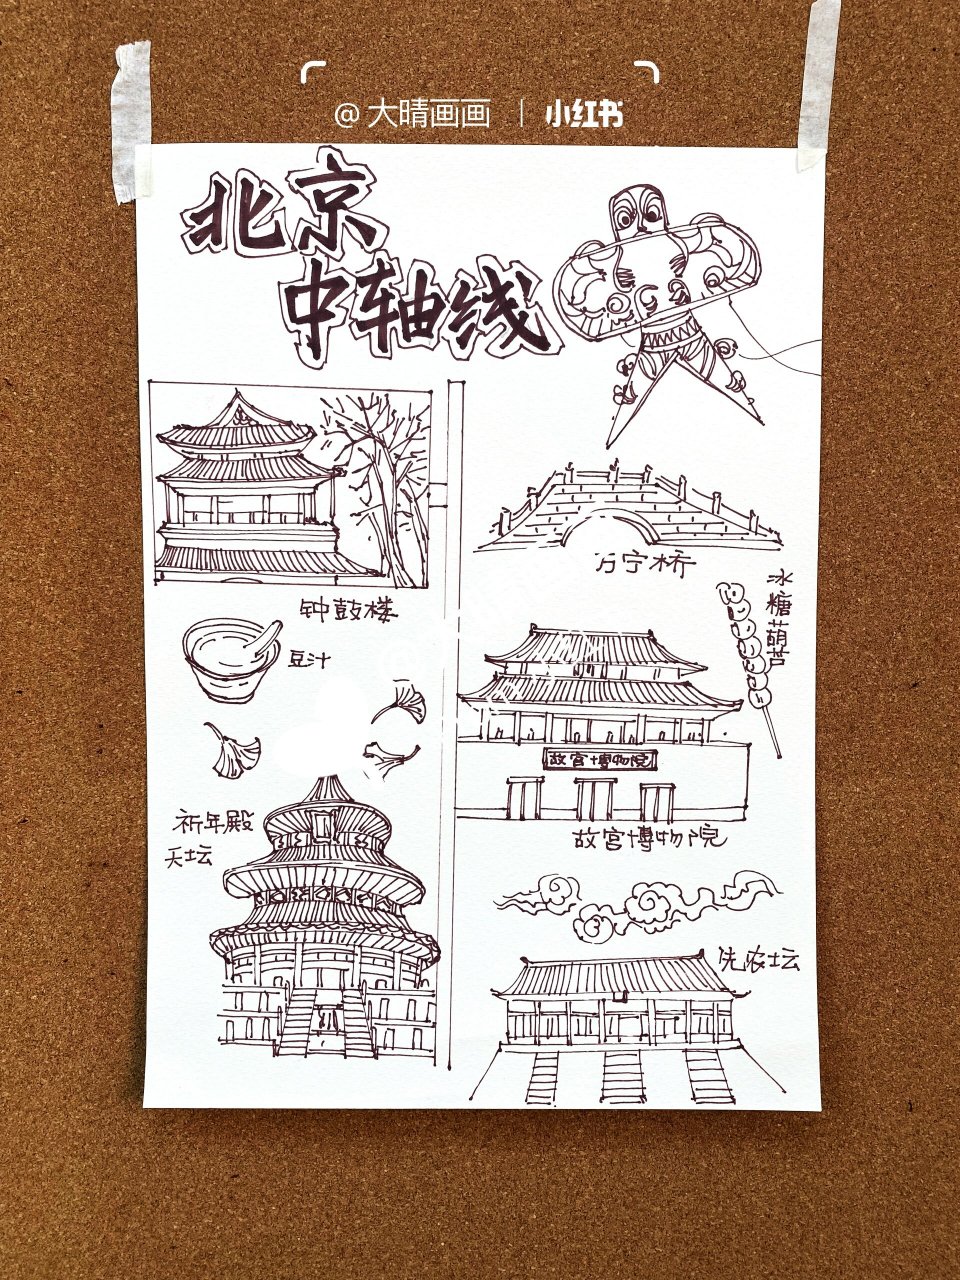 @大晴画画 | 小红书
北京
中轴线
万宁桥
冰糖葫芦
钟鼓楼
豆汁
故宫博物院
故宫博物院
祈年殿
天坛
先农坛